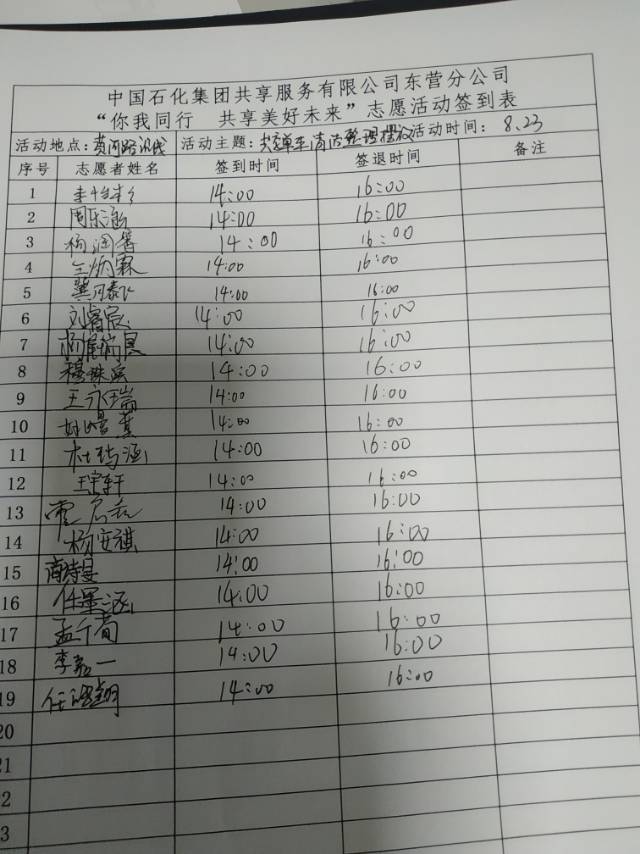 中国石化集团共享服务有限公司东营分公司
“你我同行 共享美好未来”志愿活动签到表
活动地点：黄河路沿线 活动主题：共享单车清洁整理摆放 活动时间：8.23
序号 志愿者姓名 签到时间 签退时间 备注
1 14:00 16:00
2 周乐涵 14:00 16:00
3 杨润箐 14:00 16:00
4 兰炳霖 14:00 16:00
5 14:00 16:00
6 刘睿宸 14:00 16:00
7 14:00 16:00
8 穆珠滨 14:00 16:00
9 王永瑞 14:00 16:00
10 14:00 16:00
11 杜玙涵 14:00 16:00
12 王宝轩 14:00 16:00
13 14:00 16:00
14 杨安祺 14:00 16:00
15 商诗昙 14:00 16:00
16 任景涵 14:00 16:00
17 孟令荀 14:00 16:00
18 李嘉一 14:00 16:00
19 14:00 16:00
20
21
2
3